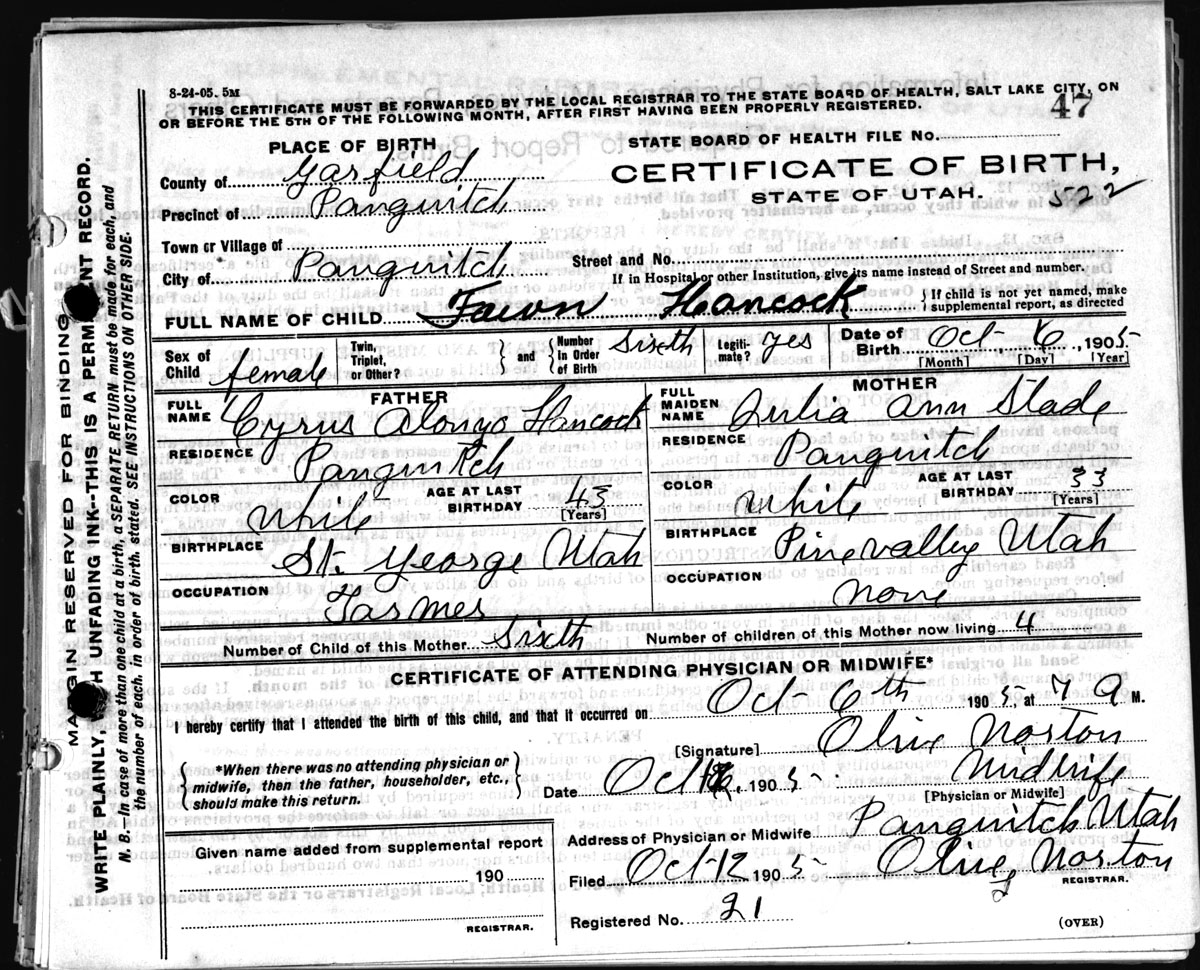 8-24-05. 5M
THIS CERTIFICATE MUST BE FORWARDED BY THE LOCAL REGISTRAR TO THE STATE BOARD OF HEALTH, SALT LAKE CITY, ON
OR BEFORE THE 5TH OF THE FOLLOWING MONTH, AFTER FIRST HAVING BEEN PROPERLY REGISTERED.
47
PLACE OF BIRTH
STATE BOARD OF HEALTH FILE NO.
County of Garfield
CERTIFICATE OF BIRTH,
Precinct of Panguitch
STATE OF UTAH.
522
Town or Village of
City of Panguitch
Street and No.
If in Hospital or other Institution, give its name instead of Street and number.
FULL NAME OF CHILD Fawn Hancock
{ If child is not yet named, make
supplemental report, as directed
Sex of Child female
Twin, Triplet, or Other?
} and { Number in Order of Birth Sixth
Legitimate? yes
Date of Birth Oct 6, 1905
[Month] [Day] [Year]
FATHER
FULL NAME Cyrus Alonzo Hancock
RESIDENCE Panguitch
COLOR White
AGE AT LAST BIRTHDAY 43
[Years]
BIRTHPLACE St. George Utah
OCCUPATION Farmer
MOTHER
FULL MAIDEN NAME Julia Ann Slade
RESIDENCE Panguitch
COLOR White
AGE AT LAST BIRTHDAY 33
[Years]
BIRTHPLACE Pinevalley Utah
OCCUPATION None
Number of Child of this Mother Sixth
Number of children of this Mother now living 4
CERTIFICATE OF ATTENDING PHYSICIAN OR MIDWIFE*
I hereby certify that I attended the birth of this child, and that it occurred on Oct 6th 1905, at 7 a M.
[Signature] Olive Norton
{ *When there was no attending physician or
midwife, then the father, householder, etc.,
should make this return. }
Date Oct , 1905 Midwife
[Physician or Midwife]
Address of Physician or Midwife Panguitch Utah
Given name added from supplemental report
190
REGISTRAR.
Filed Oct 12 1905 Olive Norton
REGISTRAR.
Registered No. 21
(OVER)
MARGIN RESERVED FOR BINDING
WRITE PLAINLY, UNFADING INK--THIS IS A PERMANENT RECORD.
N. B.—In case of more than one child at a birth, a SEPARATE RETURN must be made for each, and
the number of each, in order of birth, stated. SEE INSTRUCTIONS ON OTHER SIDE.